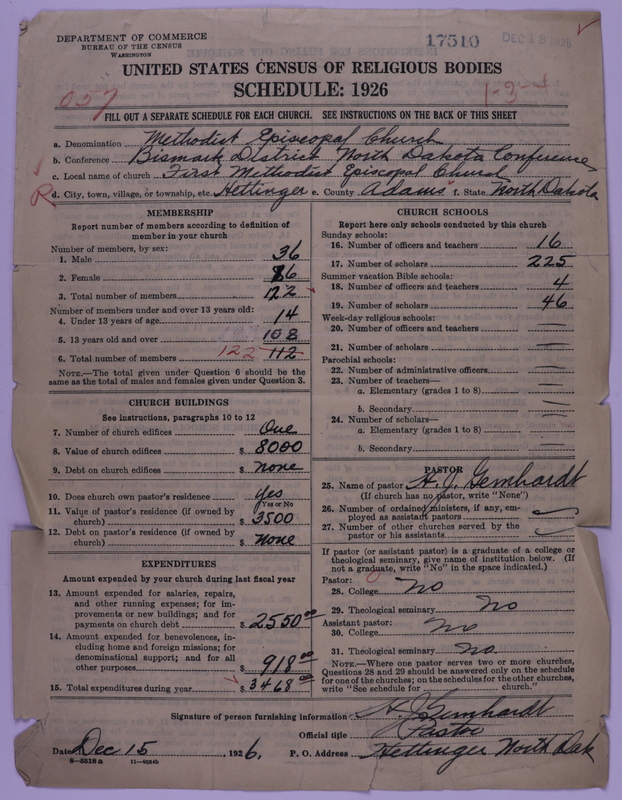 DEPARTMENT OF COMMERCE
BUREAU OF THE CENSUS
WASHINGTON
17510
DEC 18 1926
UNITED STATES CENSUS OF RELIGIOUS BODIES
SCHEDULE: 1926
057
1-3-4
FILL OUT A SEPARATE SCHEDULE FOR EACH CHURCH. SEE INSTRUCTIONS ON THE BACK OF THIS SHEET
a. Denomination Methodist Episcopal Church
b. Conference Bismark District North Dakota Conference
c. Local name of church First Methodist Episcopal Church
R d. City, town, village, or township, etc. Hettinger e. County Adams f. State North Dakota
MEMBERSHIP
Report number of members according to definition of member in your church
Number of members, by sex:
1. Male 36
2. Female 86
3. Total number of members 122
Number of members under and over 13 years old:
4. Under 13 years of age 14
5. 13 years old and over 108
6. Total number of members 122 112
NOTE.—The total given under Question 6 should be the same as the total of males and females given under Question 3.
CHURCH BUILDINGS
See instructions, paragraphs 10 to 12
7. Number of church edifices One
8. Value of church edifices $ 8000
9. Debt on church edifices $ none
10. Does church own pastor's residence Yes
Yes or No
11. Value of pastor's residence (if owned by church) $ 3500
12. Debt on pastor's residence (if owned by church) $ None
EXPENDITURES
Amount expended by your church during last fiscal year
13. Amount expended for salaries, repairs, and other running expenses; for improvements or new buildings; and for payments on church debt $ 2550.00
14. Amount expended for benevolences, including home and foreign missions; for denominational support; and for all other purposes $ 918.00
15. Total expenditures during year $ 3468.00
CHURCH SCHOOLS
Report here only schools conducted by this church
Sunday schools:
16. Number of officers and teachers 16
17. Number of scholars 225
Summer vacation Bible schools:
18. Number of officers and teachers 4
19. Number of scholars 46
Week-day religious schools:
20. Number of officers and teachers —
21. Number of scholars —
Parochial schools:
22. Number of administrative officers —
23. Number of teachers—
a. Elementary (grades 1 to 8) —
b. Secondary —
24. Number of scholars—
a. Elementary (grades 1 to 8) —
b. Secondary —
PASTOR
25. Name of pastor H. J. Gernhardt
(If church has no pastor, write "None")
26. Number of ordained ministers, if any, employed as assistant pastors
27. Number of other churches served by the pastor or his assistants
If pastor (or assistant pastor) is a graduate of a college or theological seminary, give name of institution below. (If not a graduate, write "No" in the space indicated.)
Pastor:
28. College No
29. Theological seminary No
Assistant pastor:
30. College No
31. Theological seminary No
NOTE.—Where one pastor serves two or more churches, Questions 28 and 29 should be answered only on the schedule for one of the churches; on the schedules for the other churches, write "See schedule for church."
Signature of person furnishing information H J Gernhardt
Official title Pastor
Date Dec 15, 1926. P. O. Address Hettinger North Dak
8—5518 a 11—9064b